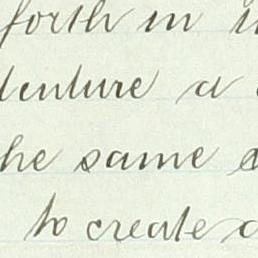 forth in
denture a
the same
to create a